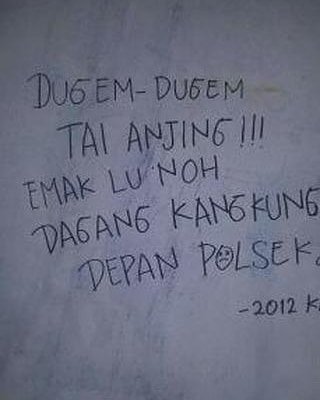 DUGEM-DUGEM
TAI ANJING!!!
EMAK LU NOH
DAGANG KANGKUNG
DEPAN POLSEK.
-2012